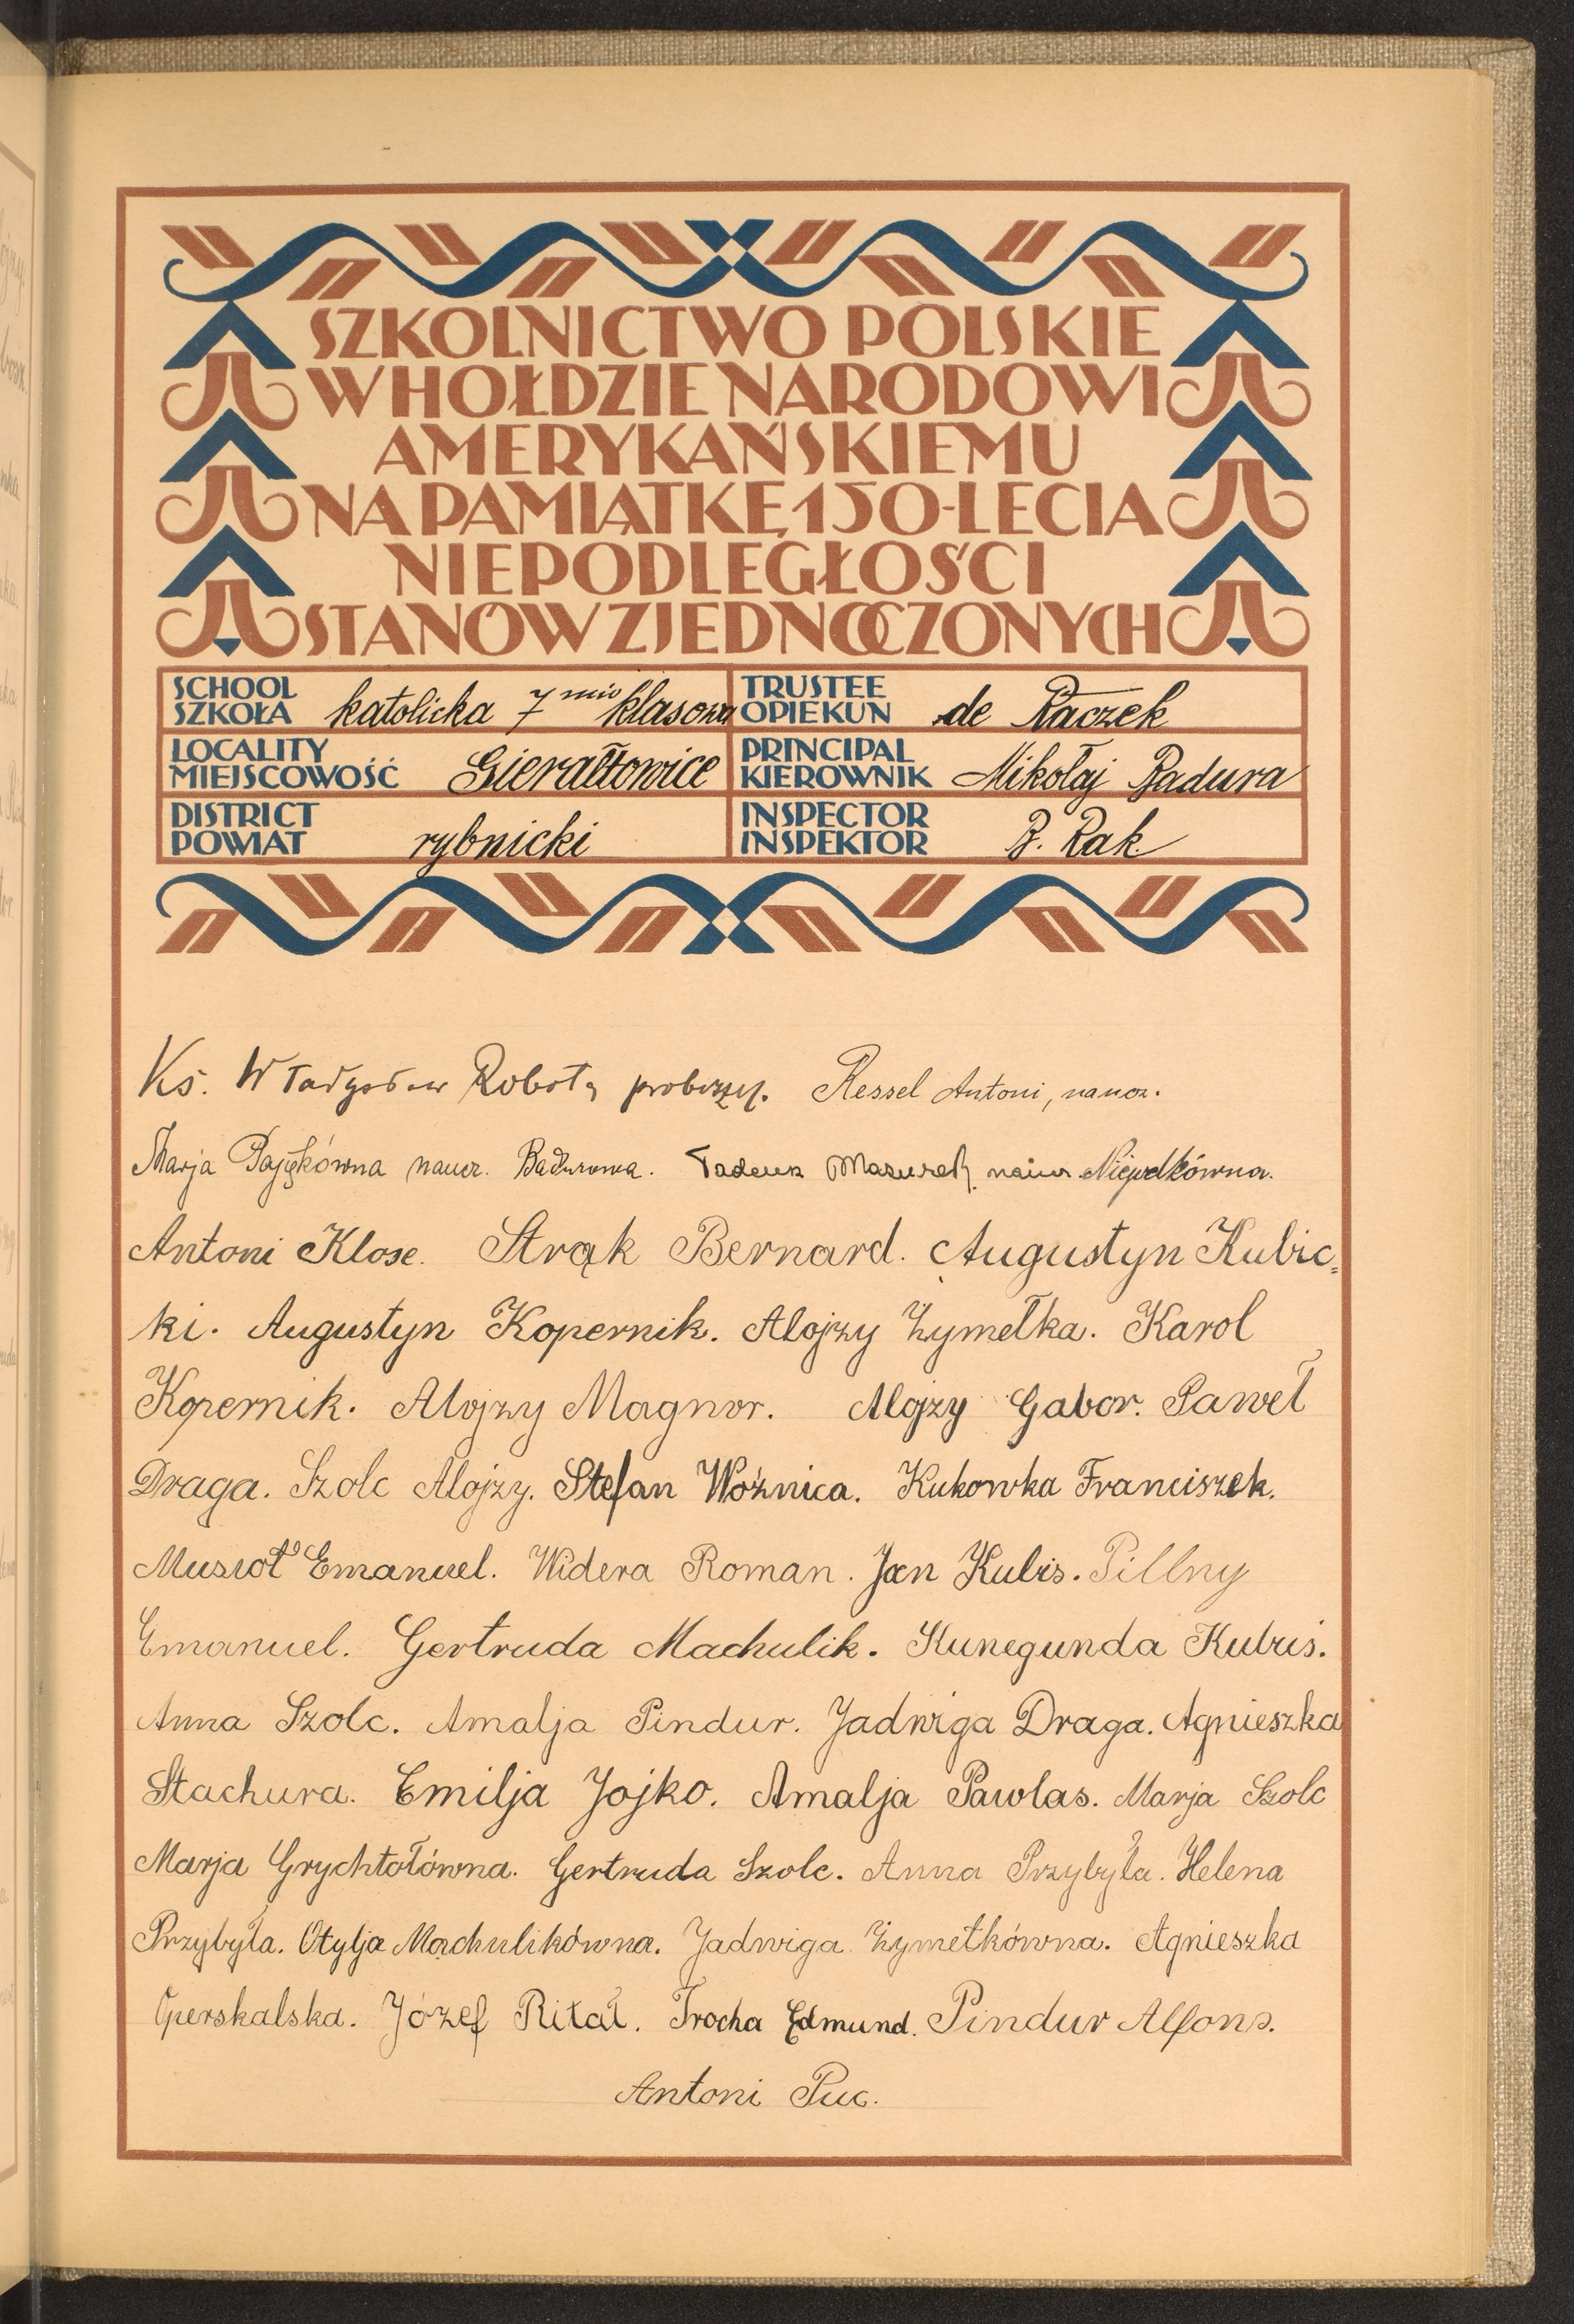 SZKOLNICTWO POLSKIE
W HOŁDZIE NARODOWI
AMERYKAŃSKIEMU
NA PAMIĄTKĘ 150-LECIA
NIEPODLEGŁOŚCI
STANÓW ZJEDNOCZONYCH
SCHOOL
SZKOŁA katolicka 7 mio klasowa
TRUSTEE
OPIEKUN de Raczek
LOCALITY
MIEJSCOWOŚĆ Gierałtowice
PRINCIPAL
KIEROWNIK Mikołaj Badura
DISTRICT
POWIAT rybnicki
INSPECTOR
INSPEKTOR B. Rak
Ks. Władysław Robota proboszcz. Ressel Antoni, naucz.
Marja Pajękówna naucz. Badurowa. Tadeusz Mazurek naucz. Niejodkówna.
Antoni Klose. Strąk Bernard. Augustyn Kubic=
ki. Augustyn Kopernik. Alojzy Żymełka. Karol
Kopernik. Alojzy Magnor. Alojzy Gabor. Paweł
Draga. Szolc Alojzy. Stefan Woźnica. Kukowka Franciszek.
Musioł Emanuel. Widera Roman. Jan Kubis. Pillny
Emanuel. Gertruda Machulik. Kunegunda Kubiś.
Anna Szolc. Amalja Pindur. Jadwiga Draga. Agnieszka
Stachura. Emilja Jojko. Amalja Pawlas. Marja Szolc
Marja Grychtołówna. Gertruda Szolc. Anna Przybyła. Helena
Przybyła. Otylja Machulikówna. Jadwiga Żymełkówna. Agnieszka
Operskalska. Józef Ritał. Trocha Edmund. Pindur Alfons.
Antoni Puc.